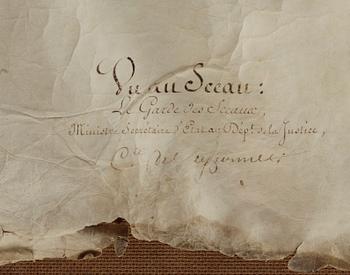 Vu au Sceau :
Le Garde des Sceaux,
Ministre Secrétaire d'Etat au Dépt. de la Justice,
Cte de Peyronnet